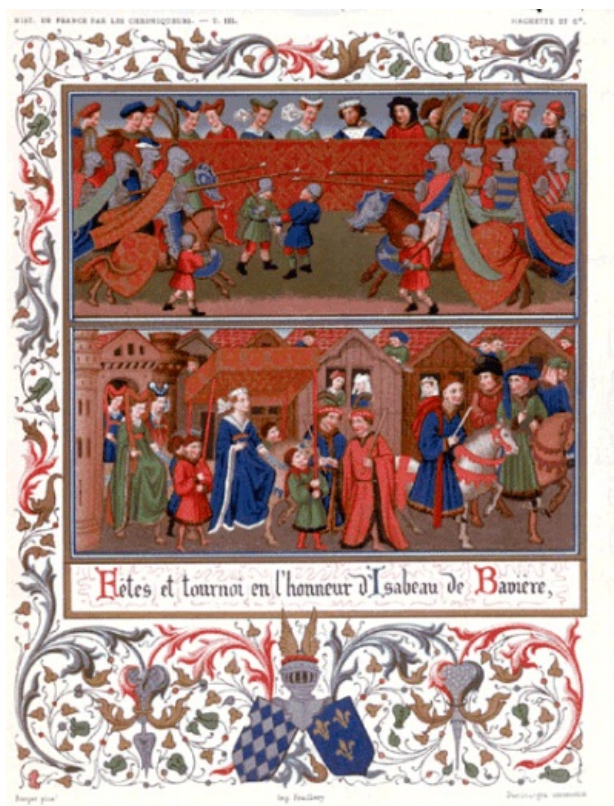 HIST. DE FRANCE PAR LES CHRONIQUEURS. — T. III.
HACHETTE ET Cie.
Fêtes et tournoi en l'honneur d'Isabeau de Bavière,